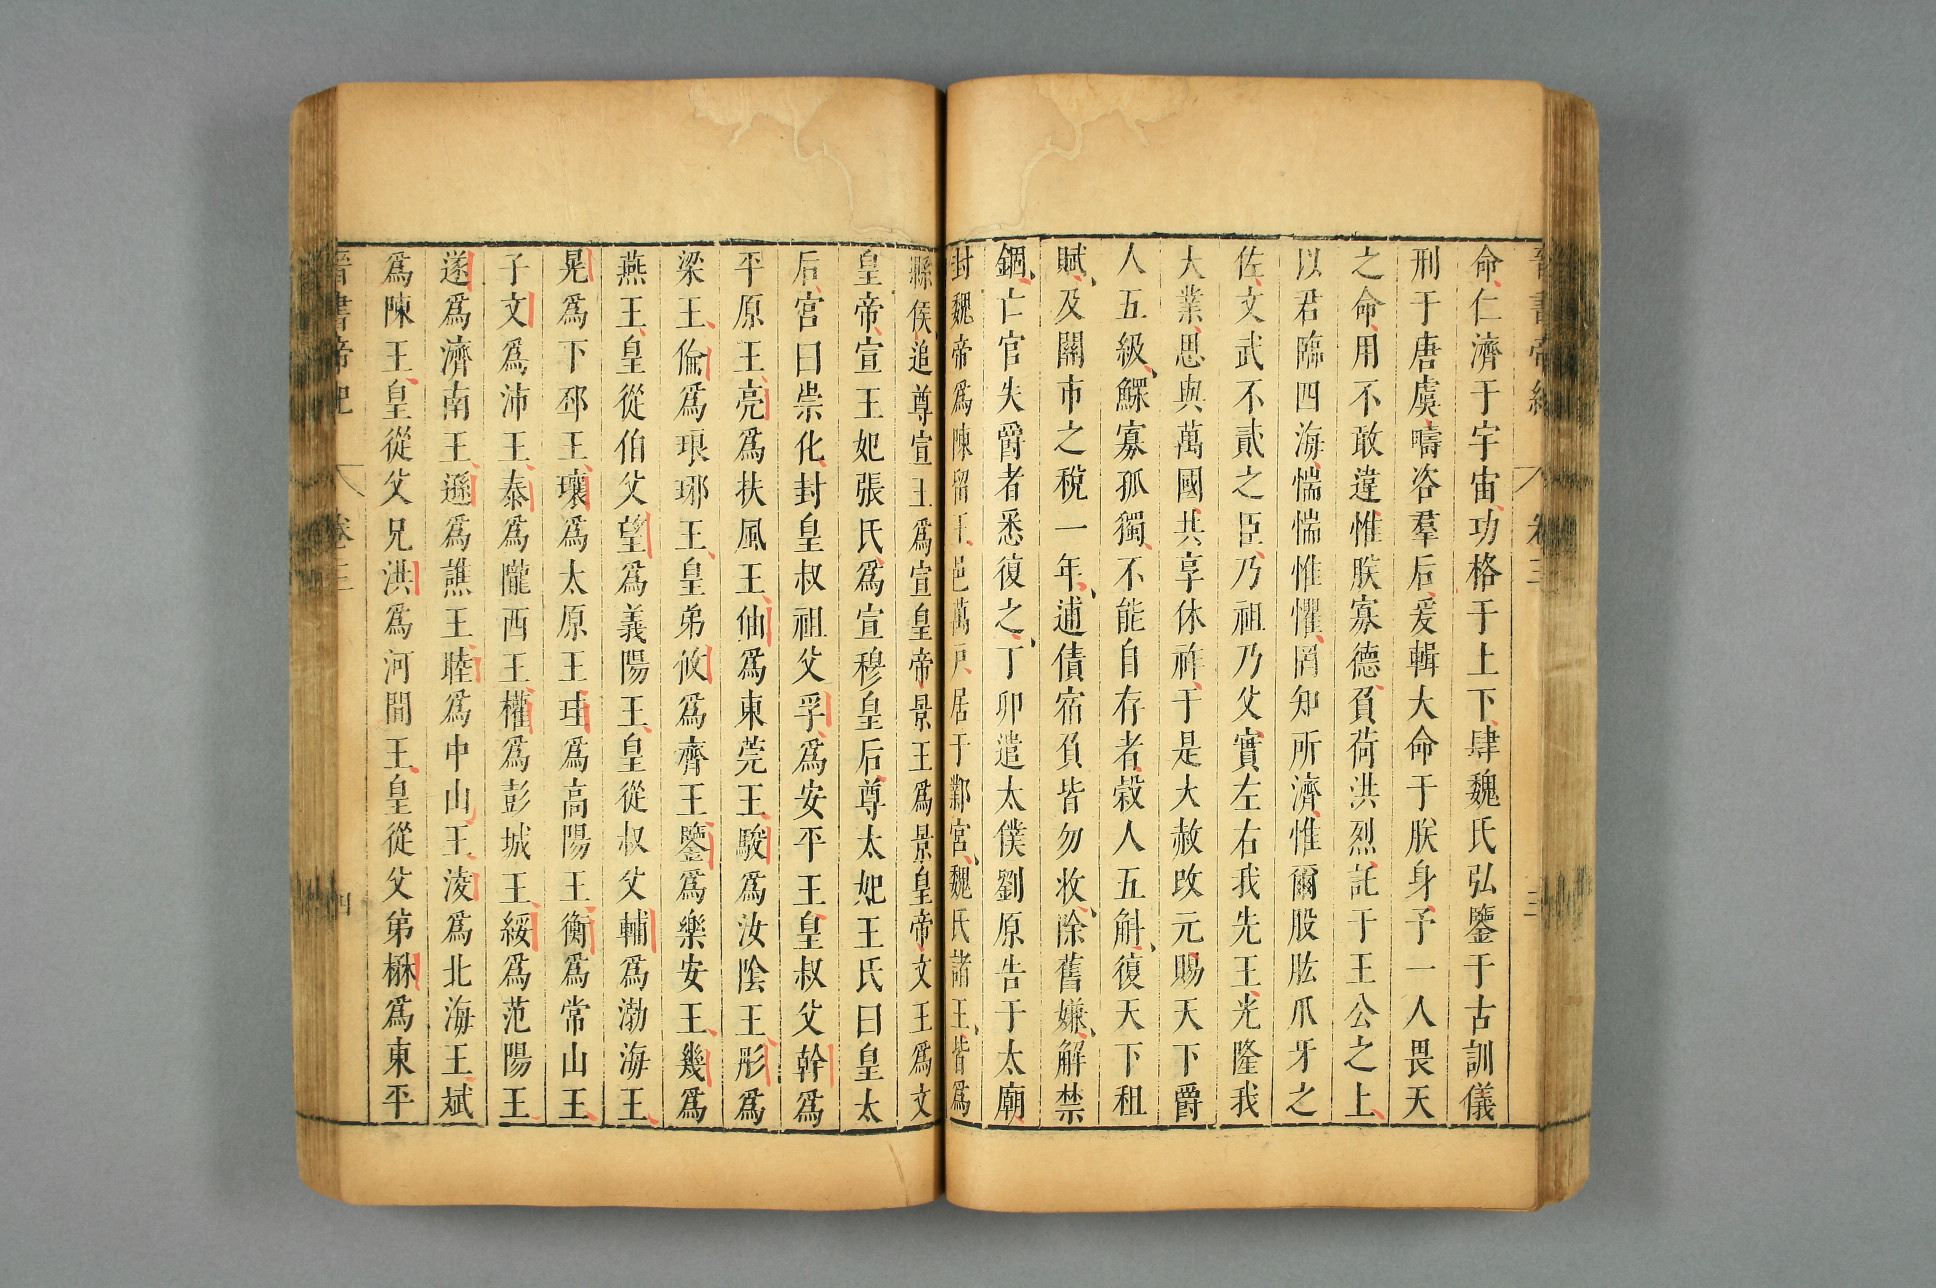 晉書帝紀 卷三 三
命仁濟于宇宙功格于上下肆魏氏弘鑒于古訓儀
刑于唐虞疇咨羣后爰輯大命于朕身予一人畏天
之命用不敢違惟朕寡德負荷洪烈託于王公之上
以君臨四海惴惴惟懼罔知所濟惟爾股肱爪牙之
佐文武不貳之臣乃祖乃父實左右我先王光隆我
大業思與萬國共享休祚于是大赦改元賜天下爵
人五級鰥寡孤獨不能自存者穀人五斛復天下租
賦及關市之稅一年逋債宿負皆勿收除舊嫌解禁
錮亡官失爵者悉復之丁卯遣太僕劉原告于太廟
封魏帝爲陳留王邑萬戶居于鄴宮魏氏諸王皆爲
縣侯追尊宣王爲宣皇帝景王爲景皇帝文王爲文
皇帝宣王妃張氏爲宣穆皇后尊太妃王氏曰皇太
后宮曰崇化封皇叔祖父孚爲安平王皇叔父幹爲
平原王亮爲扶風王伷爲東莞王駿爲汝陰王肜爲
梁王倫爲琅琊王皇弟攸爲齊王鑒爲樂安王幾爲
燕王皇從伯父望爲義陽王皇從叔父輔爲渤海王
晃爲下邳王瓌爲太原王珪爲高陽王衡爲常山王
子文爲沛王泰爲隴西王權爲彭城王綏爲范陽王
遂爲濟南王遜爲譙王睦爲中山王淩爲北海王斌
爲陳王皇從父兄洪爲河間王皇從父弟楙爲東平
晉書帝紀 卷三 四